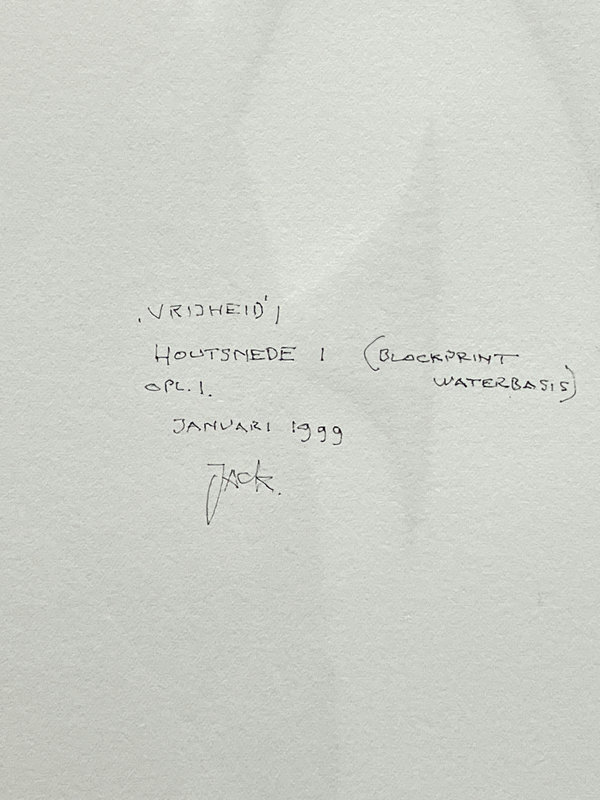 'VRIJHEID' 1
HOUTSNEDE 1 (BLOCKPRINT
OPL. 1. WATERBASIS)
JANUARI 1999
JACK.